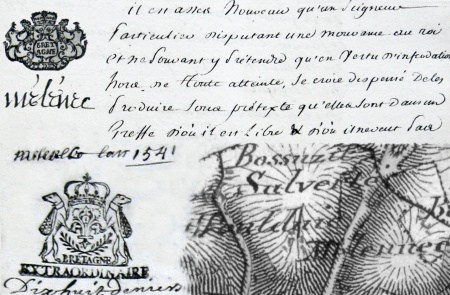 BRET
AGNE
il est assez Nouveau qu'un Seigneur
Particulier disputant une mouvance au roi
et ne Pouvant y prétendre qu'en Vertu d'infeodation
hors de Toute atteinte, se croie dispensé de les
Produire Sous prétexte qu'elles sont dans un
Greffe d'où il est Libre & d'où il ne veut pas
Mélénec
lan 1541
BRETAGNE
EXTRAORDINAIRE
Dix huit deniers
Bossuzel
Salverte
Melennec